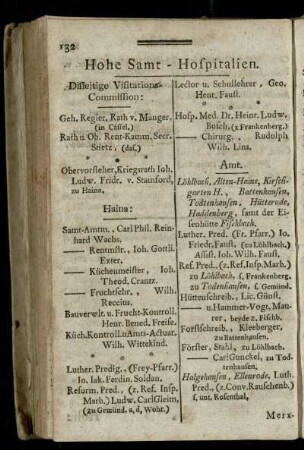 132
Hohe Samt - Hospitalien.
Disseitige Visitations-
Commission:
Geh. Regier. Rath v. Manger,
(in Cassel.)
Rath u. Ob. Rent-Kamm. Secr.
Stietz, (das.)
Obervorsteher, Kriegsrath Ioh.
Ludw. Fridr. v. Stamford,
zu Haina.
Haina:
Samt-Amtm. Carl Phil. Rein-
hard Wachs.
— Rentmstr., Ioh. Gottl.
Exter.
— Küchenmeister, Ioh.
Theod. Crantz.
— Fruchtschr., Wilh.
Reccius.
Bauverwlt. u. Frucht-Kontroll.
Henr. Bened. Freise.
Küch. Kontroll. u. Amts-Actuar.
Wilh. Wittekind.
Luther. Predig., (Frey-Pfarr.)
Io. Iak. Ferdin. Soldan.
Reform. Pred., (z. Ref. Insp.
Marb.) Ludw. Carl Gleim,
(zu Gemünd. u. d, Wohr.)
Lector u. Schullehrer, Geo.
Henr. Faust.
Hosp. Med. Dr. Heinr. Ludw.
Büsch, (z Frankenberg.)
— Chirurg. Rudolph
Wilh. Lins.
Amt.
Löhlbach, Alten-Haina, Kirsch-
garten H., Battenhausen,
Todtenhausen, Hütterode,
Haddenberg, samt der Ei-
senhütte Fischbach.
Luther. Pred. (Fr. Pfarr.) Io.
Friedr. Faust, (zu Löhlbach.)
Assist. Ioh. Wilh. Faust.
Ref. Pred., (z. Ref. Insp. Marb.)
zu Löhlbach, f, Frankenberg,
zu Todenhausen, f. Gemünd.
Hüttenschreib., Lic. Günst.
— u. Hammer-Vogt, Mau-
rer, beyde z. Fischb.
Forstschreib., Kleeberger,
zu Battenhausen.
Förster, Stahl, zu Löhlbach.
— Carl Gunckel, zu Tod-
tenhausen,
Halgehausen, Ellenrode, Luth.
Pred., (z. Conv. Rauschenb.)
f, unt. Rosenthal,
Merx-